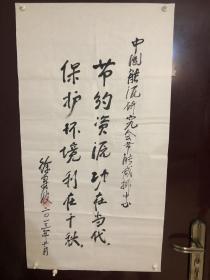 中国能源研究会节能减排中心
节约资源功在当代
保护环境利在千秋
二〇一三年十月